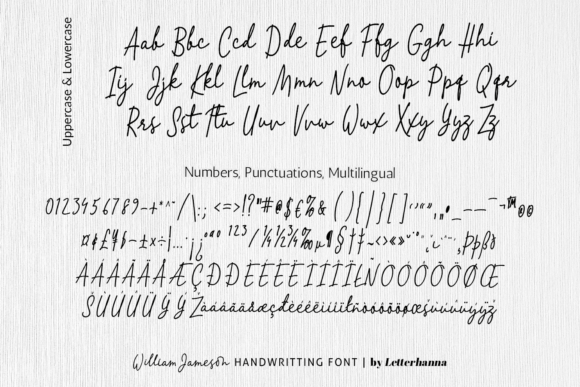 Uppercase & Lowercase
Aab Bbc Ccd Dde Eef Ffg Ggh Hhi
Iij Jjk Kkl Llm Mmn Nno Oop Ppq Qqr
Rrs Sst Ttu Uuv Vvw Wwx Xxy Yyz Zz
Numbers, Punctuations, Multilingual
0123456789-+*^~ /\:; <=>!?"#@$€%& ( ) { | } [ ]
¤¢£¥ƒ-±×÷¦…·¡¿ ªº ¹²³/¼½¾‰µ¶§†‡~‹›«» Þþßð
ÀÁÂÃÄÅÆÇÐĐÈÉÊËÌÍÎÏŁÑÒÓÔÕÖØŒ
ŠÙÚÛÜŸÝŽàáâãäåæçđèéêëìíîïłñòóôõöøœšùúûüÿýž
William Jameson HANDWRITTING FONT | by Letterhanna